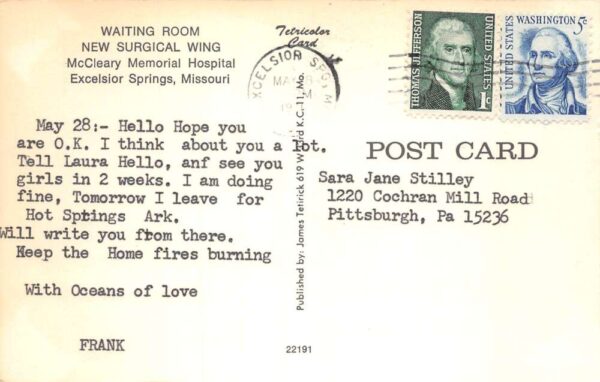 WAITING ROOM
NEW SURGICAL WING
McCleary Memorial Hospital
Excelsior Springs, Missouri
Tetricolor
Card
THOMAS JEFFERSON
UNITED STATES
1c
UNITED STATES
WASHINGTON 5c
May 28:- Hello Hope you
are O.K. I think about you a lot.
Tell Laura Hello, anf see you
girls in 2 weeks. I am doing
fine, Tomorrow I leave for
Hot Sptings Ark.
Will write you ftom there.
Keep the Home fires burning
With Oceans of love
FRANK
Published by: James Tetirick 619 W. 111, Mo.
POST CARD
Sara Jane Stilley
1220 Cochran Mill Road
Pittsburgh, Pa 15236
22191